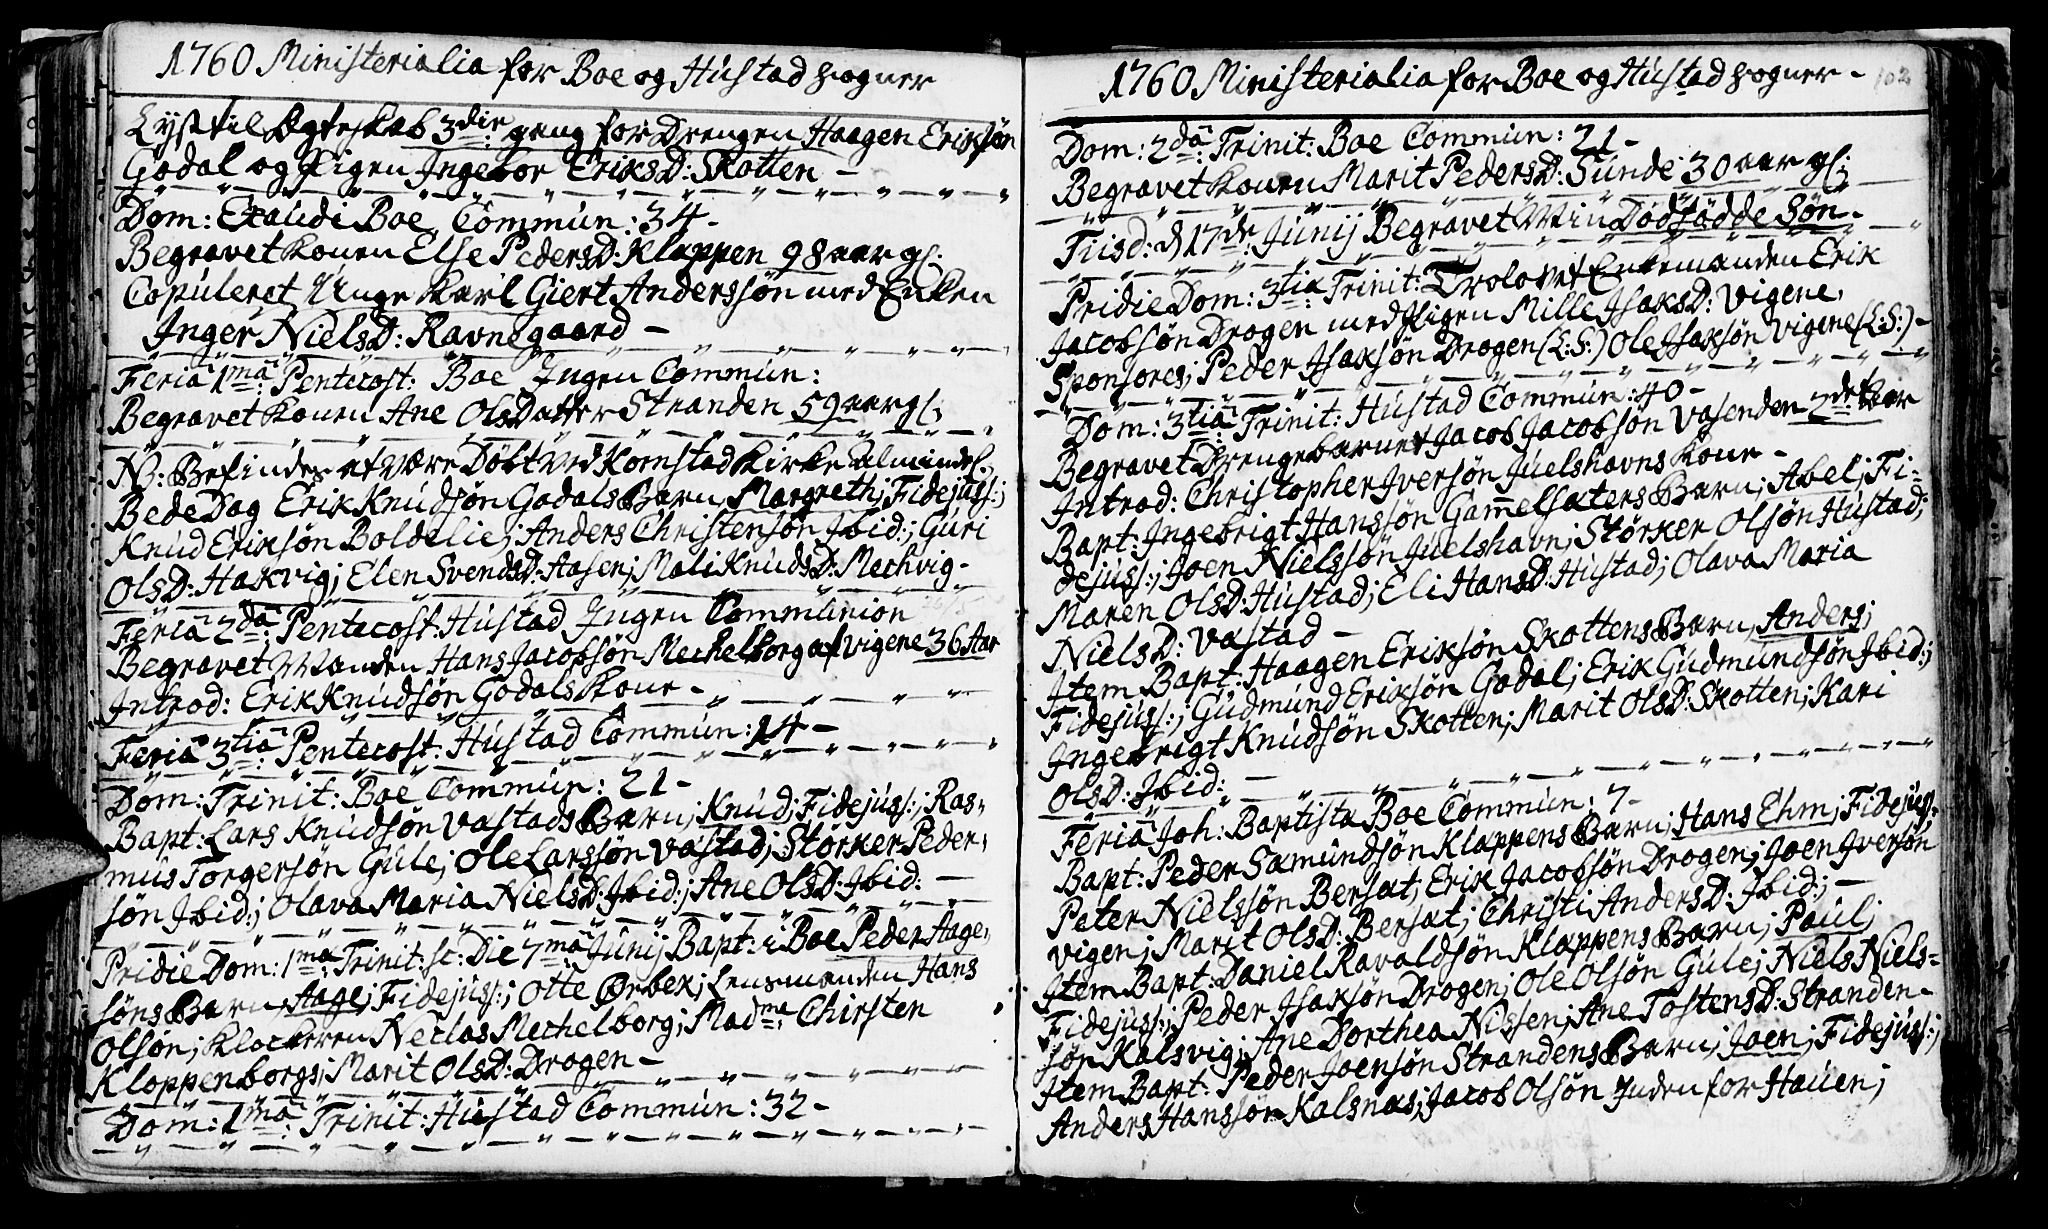 1760 Ministerialia for Boe og Hústad sogner
Lyst til Ægteskab 3die: gang for Drengen Haagen Eriksøn
Godal og Pigen Ingebor EriksD: Skotten –
Dom: Exaudi Boe Commún: 34 –
Begravet Konen Else PedersD: Klappen 98 aar gl:
Copúleret Unge Karl Giert Anderssøn med Enken
Inger NielsD: Ravnegaard –
Feria 1ma: Pentecost: Boe Ingen Commún:
Begravet Konen Ane OlsDatter Stranden 59 aar gl:
NB: Befindes at være Døbt ved Kornstad Kirke Almindel:
Bede Dag Erik Knúdsøn Godals Barn, Margreth; Fidejúss:;
Knúd Eriksøn Boldelie; Anders Christensøn Ibid:; Gúri
OlsD: Hakvig; Elen SvendsD: Aasen; Mali KnúdsD: Mechvig –
Feria 2da: Pentecost: Hústad Ingen Commúnion
Begravet Manden Hans Jacobsøn Mechelborg af Vigene 36 Aar
Introd: Erik Knúdsøn Godals Kone –
Feria 3tia: Pentecost: Hústad Commún: 14 –
Dom: Trinit: Boe Commún: 21 –
Bapt: Lars Knúdsøn Vastads Barn; Knúd; Fidejúss:; Ras-
mús Torgersøn Gúle; Ole Larssøn Vastad; Størker Peder-
søn Ibid:; Olava Maria NielsD: Ibid:; Ane OlsD: Ibid: –
Pridie Dom: 1ma: Trinit: sc: Die 7ma: Júnij Bapt: i Boe Peder Aage-
søns Barn Aage; Fidejúss:; Otte Ørbek; Lensmanden Hans
Olsøn; Klockeren Neclas Mechelborg; Madme: Chirsten
Kloppenborgs; Marit OlsD: Drogen –
Dom: 1ma: Trinit: Hústad Commún: 32 –
1760 Ministerialia for Boe og Hústad sogner – 102
Dom: 2da: Trinit: Boe Commún: 21 –
Begravet Konen Marit PedersD: Súnde 30 aar gl:
Tiisd: d 17de: Júnij Begravet Min Dødfødde Søn –
Pridie Dom: 3tia: Trinit: Trolovet Enkemanden Erik
Jacobsøn Drogen med Pigen Mille IsaksD: Vigene,
Sponsores; Peder Isaksøn Drogen (L:S:) Ole Isaksøn Vigene (L:S:) –
Dom: 3tia: Trinit: Hústad Commún: 40 –
Begravet Drengebarnet Jacob Jacobsøn Vasenden 2det aar
Introd: Christopher Iversøn Júelshavns Kone –
Bapt: Ingebrigt Hanssøn Gam̅elsæters Barn; Abel; Fi-
dejúss:; Joen Nielssøn Júelshavn; Størker Olsøn Hústad;
Maren OlsD: Hústad; Eli HansD: Hústad; Olava Maria
NielsD: Vastad –
Item Bapt: Haagen Eriksøn Skottens Barn, Anders;
Fidejúss:; Gúdmúnd Eriksøn Godal; Erik Gúdmúndsøn Ibid:;
Ingebrigt Knúdsøn Skotten; Marit OlsD: Skotten; Kari
OlsD: Ibid: –
Feria Joh: Baptista Boe Commún: 7 –
Bapt: Peder Sæmúndsøn Klappens Barn; Hans Ehm; Fidejúss:
Peter Nielssøn Bersæt; Erik Jacobsøn Drogen; Joen Iversøn
Vigen; Marit OlsD: Bersæt; Christi AndersD: Ibid:; –
Item Bapt: Daniel Ravaldsøn Klappens Barn; Paúl;
Fidejúss:; Peder Isaksøn Drogen; Ole Olsøn Gúle; Niels Niels-
søn Kalsvig; Ane Dorthea Nissen; Ane TostensD: Stranden –
Item Bapt: Peder Joensøn Strandens Barn; Joen; Fidejúss:;
Anders Hanssøn Kalsnæs; Jacob Olsøn Inden for Haúen;